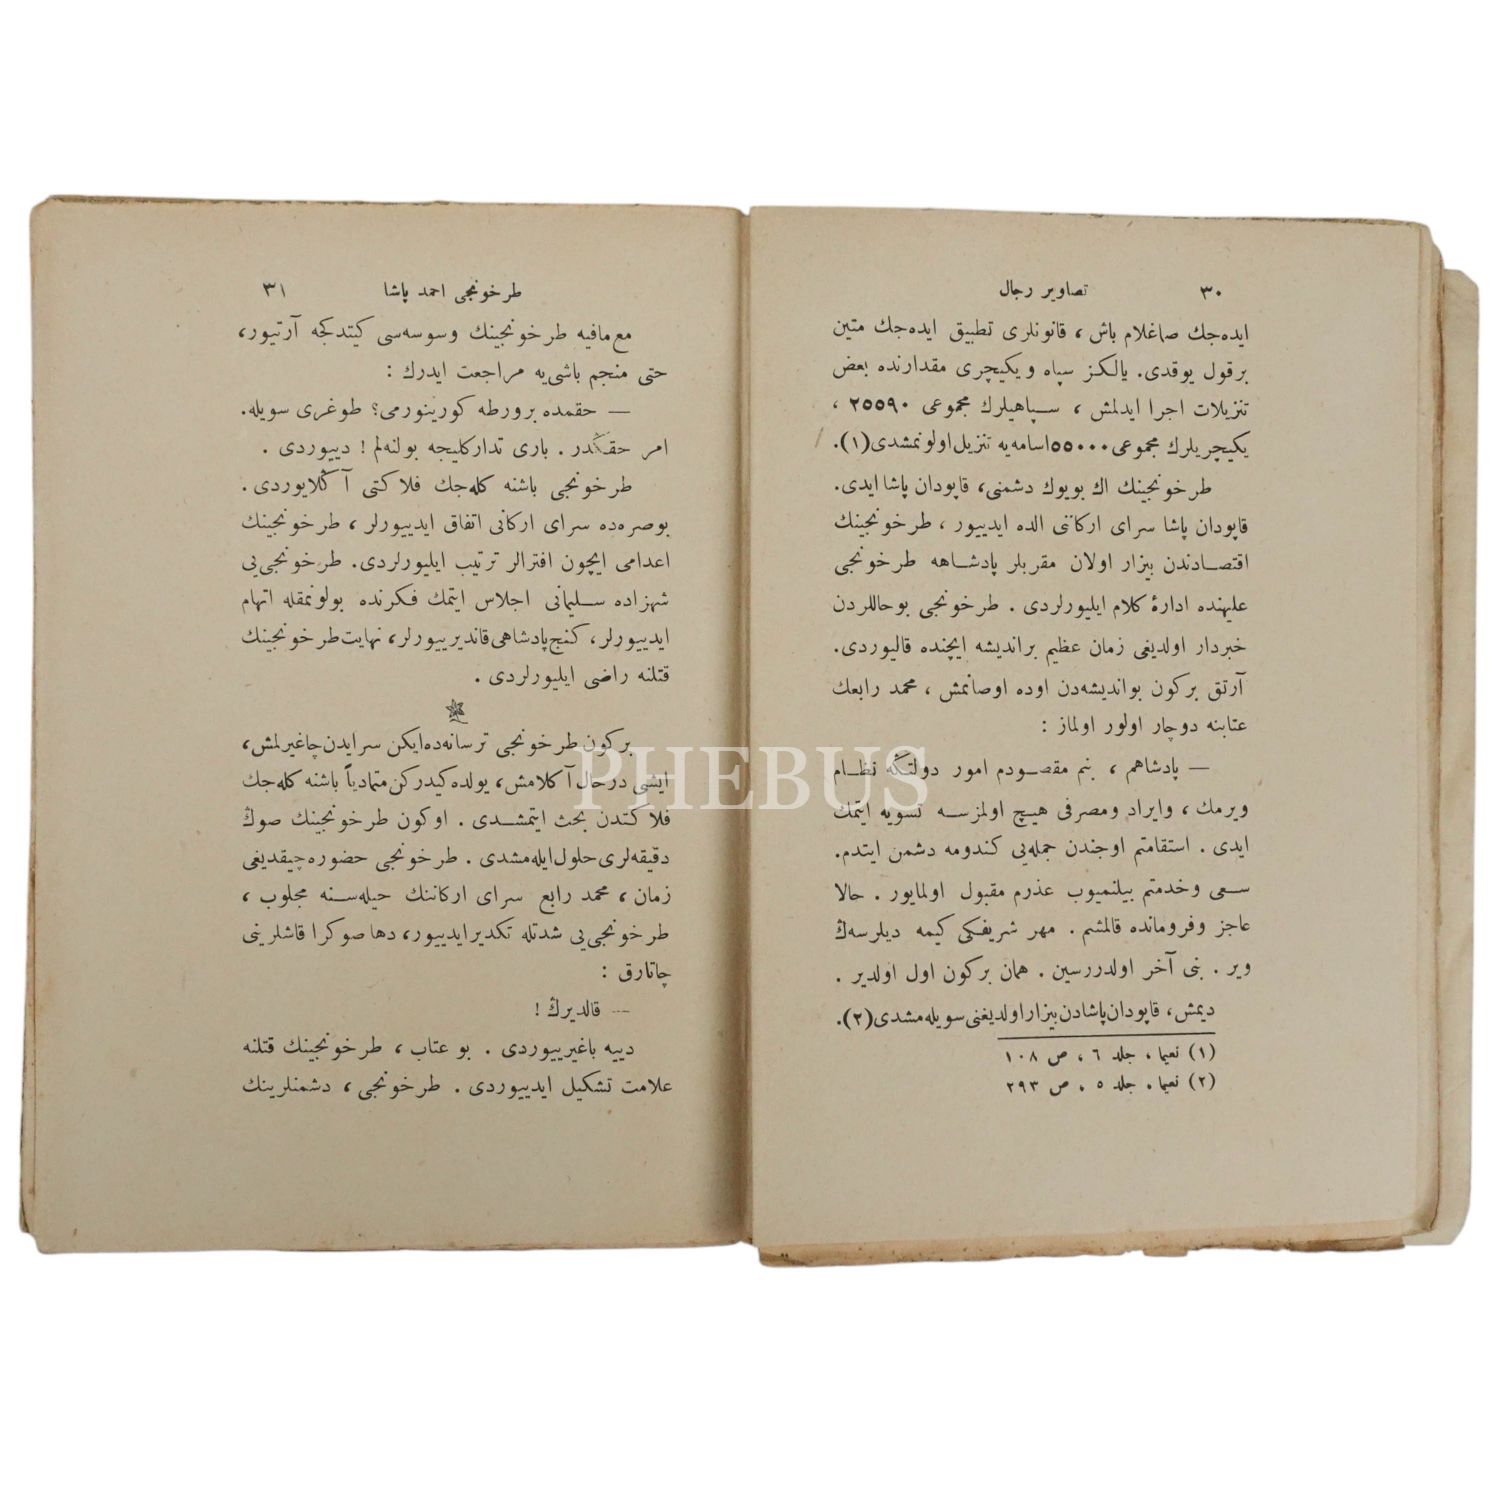 تصاویر رجال ٣٠
ایده‌جك صاغلام باش ، قانونلری تطبیق ایده‌جك متین
برقول یوقدی. یالكز سپاه و یكیچری مقدارنده بعض
تنزیلات اجرا ایدلمش ، سپاهیلرك مجموعی ٢٥٥٩٠ ،
یكیچریلرك مجموعی ٥٥٠٠٠ اسامه‌یه تنزیل اولونمشدی (١).
طرخونجینك اك بویوك دشمنی، قاپودان پاشا ایدی.
قاپودان پاشا سرای اركاننی الده ایدییور ، طرخونجینك
اقتصادندن بیزار اولان مقربلر پادشاهه طرخونجی
علیهنده ادارۀ كلام ایلیورلردی . طرخونجی بوحاللردن
خبردار اولدیغی زمان عظیم براندیشه ایچنده قالیوردی.
آرتق بركون بواندیشه‌دن اوده اوصانمش ، محمد رابعك
عتابنه دوچار اولور اولماز :
— پادشاهم ، بنم مقصودم امور دولتكه نظام
ویرمك ، وایراد ومصرفی هیچ اولمزسه تسویه ایتمك
ایدی . استقامتم اوجندن جمله‌یی كندومه دشمن ایتدم.
سعی وخدمتم بیلنمیوب عذرم مقبول اولمایور . حالا
عاجز وفرومانده قالمشم . مهر شریفكی كیمه دیلرسه‌ڭ
ویر . بنی آخر اولدررسین . همان بركون اول اولدیر .
دیمش، قاپودان پاشادن بیزار اولدیغنی سویله‌مشدی (٢).
(١) نعیما ، جلد ٦ ، ص ١٠٨
(٢) نعیما ، جلد ٥ ، ص ٢٩٣
طرخونجی احمد پاشا ٣١
مع‌مافیه طرخونجینك وسوسه‌سی كیتدكجه آرتیور،
حتی منجم باشی‌یه مراجعت ایدرك :
— حقمده برورطه كورینورمی؟ طوغری سویله.
امر حقكدر . باری تداركلیجه بولنه‌لم ! دییوردی .
طرخونجی باشنه كله‌جك فلاكتی آڭلایوردی .
بوصره‌ده سرای اركانی اتفاق ایدییورلر ، طرخونجینك
اعدامی ایچون افترالر ترتیب ایلیورلردی. طرخونجی‌یی
شهزاده سلیمانی اجلاس ایتمك فكرنده بولونمقله اتهام
ایدییورلر، كنج پادشاهی قاندیرییورلر، نهایت طرخونجینك
قتلنه راضی ایلیورلردی .
بركون طرخونجی ترسانه‌ده ایكن سرایدن چاغیرلمش،
ایشی درحال آكلامش، یولده كیدركن متمادیاً باشنه كله‌جك
فلاكتدن بحث ایتمشدی . اوكون طرخونجینك صوڭ
دقیقه‌لری حلول ایله‌مشدی . طرخونجی حضوره چیقدیغی
زمان ، محمد رابع سرای اركاننك حیله‌سنه مجلوب ،
طرخونجی‌یی شدتله تكدیر ایدییور، دها صوكرا قاشلرینی
چاتارق :
— قالدیرڭ !
دییه باغیرییوردی . بو عتاب ، طرخونجینك قتلنه
علامت تشكیل ایدییوردی . طرخونجی ، دشمنلرینك
PHEBUS